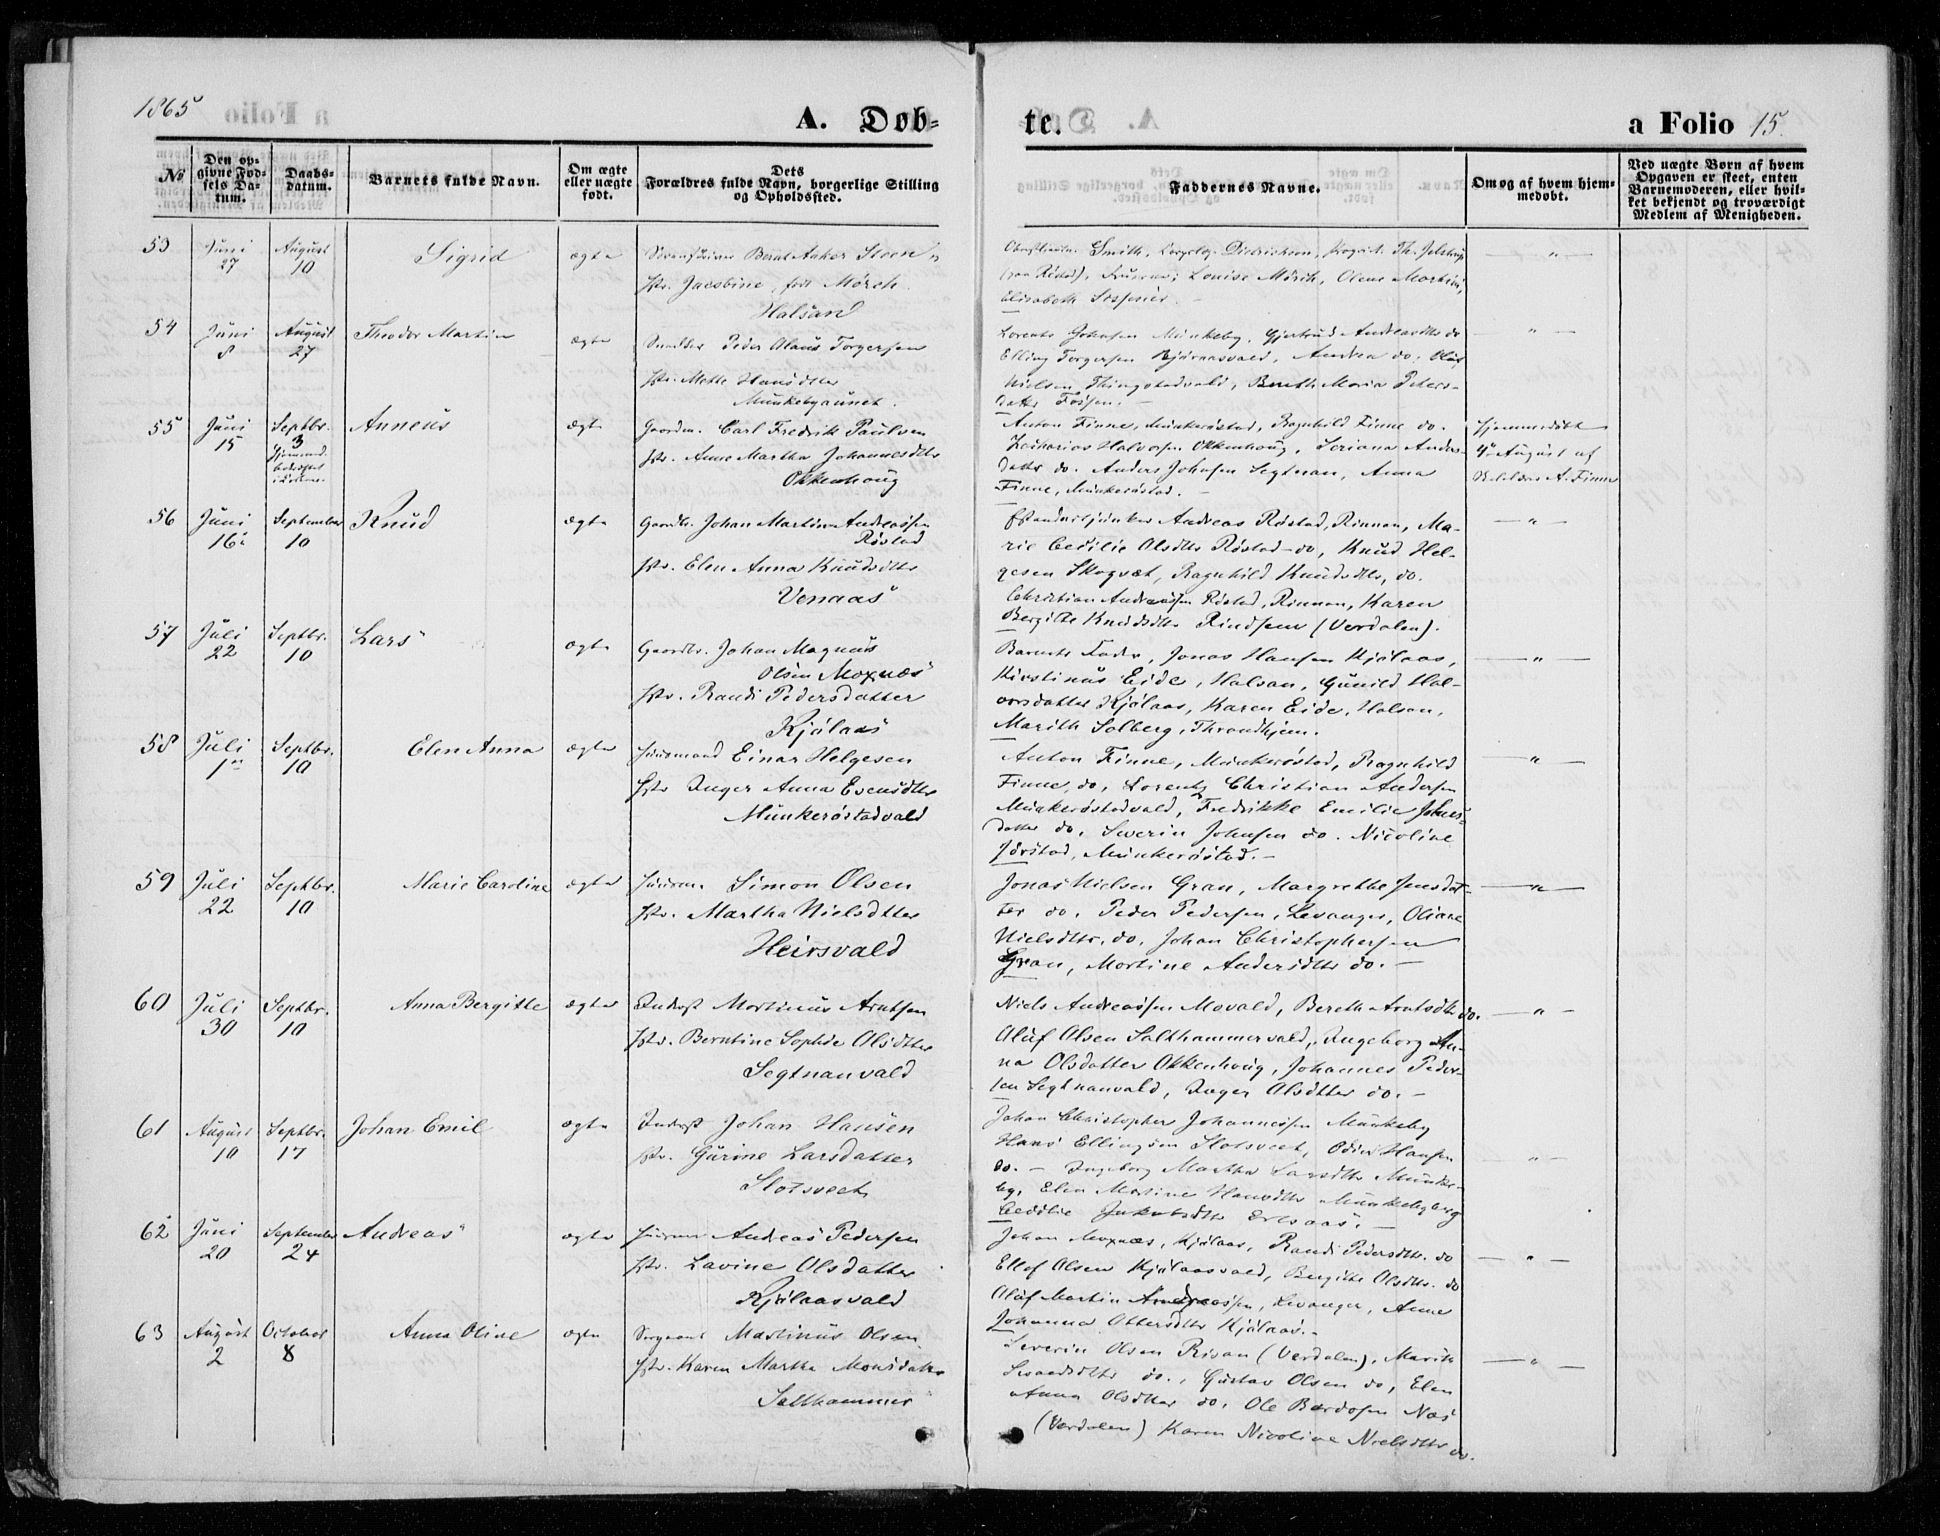 1865
A. Døb-
te.
a Folio 15.
No
Den op-
givne Fød-
sels Da-
tum.
Daabs-
datum.
Barnets fulde Navn.
Om ægte
eller uægte
født.
Dets
Forældres fulde Navn, borgerlige Stilling
og Opholdssted.
Faddernes Navne.
Om og af hvem hjem-
medøbt.
Ved uægte Børn af hvem
Opgaven er skeet, enten
Barnemoderen, eller hvil-
ket bekjendt og troværdigt
Medlem af Menigheden.
53
Juni
27
August
10
Sigrid
ægte
Bernt Anker Steen
Jacobine, født Mørch
Halsan
Smith, Didrichsen, Th. Jelstrup
Louise Mørch, Olene Martine,
Elisabeth
54
Juni
8
August
27
Theodor Martin
ægte
Peder Olaus Torgersen
Hstr. Mette Hansdtter
Munkebyaunet.
Lorents Johnsen Munkeby, Gjertrud Andreasdtr do
Elling Torgersen Bjørnaasvald, Andrea do, Oluf
Nielsen Thingstadvald, Bereth Maria Peters-
datter Fossen.
55
Juni
15
Septbr.
3
Anneus
ægte
Gaardm. Carl Fredrik Paulsen
Hstr. Anne Martha Johannesdtr
Okkenhoug
Anton Finne, Munkerøstad, Ragnhild Finne do.
Zacharias Halvorsen Okkenhoug, Seriana Anders-
datter do. Anders Johnsen Segtnan, Anna
Finne, Munkerøstad.
Hjemmedøbt
4de August af
A. Finne
56
Juni
16
September
10
Knud
ægte
Gaardbr. Johan Martin Andreassen
Røstad
Hstr. Elen Anna Knudsdtr
Venaas
Andreas Røstad, Rinnan, Ma-
rie Cecilie Olsdtr Røstad do, Knud Hel-
gesen Skogvet, Ragnhild Knudsdtr, do.
Christian Andreassen Røstad, Rinnan, Karen
Bergitte Knudsdtr Rindsem (Verdalen).
57
Juli
22
Septbr.
10
Lars
ægte
Gaardbr. Johan Magnus
Olsen Moxnæs
Hstr. Randi Pedersdatter
Kjølaas
Barnets Fader, Jonas Hansen Kjølaas,
Kirstinus Eide, Halsan, Gunild Hal-
vorsdatter Kjølaas, Karen Eide, Halsan,
Marith Solberg, Throndhjem.
58
Juli
1
Septbr.
10
Elen Anna
ægte
Huusmand Einar Helgesen
Hstr Inger Anna Evensdtr
Munkerøstadvald
Anton Finne, Munkerøstad, Ragnhild
Finne, do, Lorents Christian Andersen
Munkerøstadvald, Fredrikke Emilie Johns-
datter do. Severin Johnsen do. Nicoline
Jørstad, Munkerøstad.
59
Juli
22
Septbr.
10
Marie Caroline
ægte
Huusm. Simon Olsen
Hstr. Martha Nielsdtter
Heirsvald
Jonas Nielsen Gran, Margrethe Jensdat-
ter do. Peder Pedersen, Levanger, Oliane
Nielsdtr. do. Johan Christophersen
Gran, Mortine Andersdtr do.
60
Juli
30
Septbr.
10
Anna Bergitte
ægte
Inderst Mortinus Arntsen
Hstr. Berntine Sophie Olsdtter
Segtnanvald
Niels Andreassen Movald, Bereth Arntsdtr do.
Oluf Olsen Salthammervald, Ingeborg An-
na Olsdatter Okkenhoug, Johannes Peder-
sen Segtnanvald, Inger Olsdtter do.
61
August
10
Septbr.
17
Johan Emil
ægte
Inderst Johan Hansen
Hstr. Gurine Larsdatter
Slotsveet
Johan Christopher Johannesen Munkeby
Hans Ellingsen Slotsveet, Odin Hansen
do. Ingeborg Martha Larsdtr Munke-
by, Elen Martine Hansdtr Munkebyberg
Cecilie Jakobsdtr
62
Juni
20
September
24
Andreas
ægte
Huusm Andreas Pedersen
Hstr. Lavine Olsdatter
Kjølaasvald
Johan Moxnæs, Kjølaas, Randi Pedersdtr. do
Ellef Olsen Kjølaasvald, Bergitte Olsdtr. do
Oluf Martin Andreassen, Levanger, Anne
Johanna Ottersdtr Kjølaas.
63
August
2
October
8
Anna Oline
ægte
Sergeant Martinus Olsen
Hstr. Karen Martha Monsdatter
Salthammer
Severin Olsen Risan (Verdalen), Marith
do., Gustav Olsen do, Elen
Anna Olsdtter do. Ole Bardosen Næs
(Verdalen) Karen Nicoline Nielsdtr do.